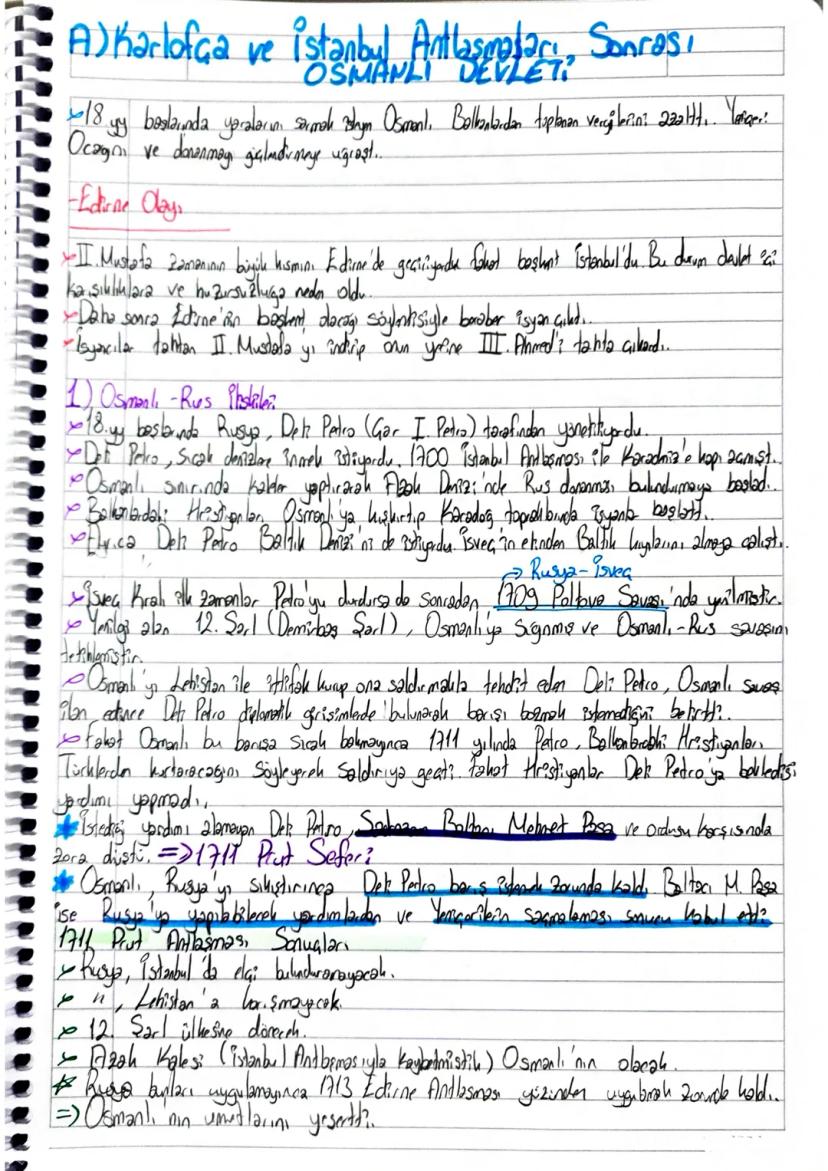 A) Karlofça ve İstanbul Antlaşmaları Sonrası
OSMANLI DEVLETİ
18. yy başlarında yaralarını sarmak isteyen Osmanlı, Balkanlardan toplanan vergilerini azalttı. Yeniçeri
Ocağını ve donanmayı güçlendirmeye uğraştı.
-Edirne Olayı
II. Mustafa zamanının büyük kısmını Edirne'de geçiriyordu fakat başkent İstanbul'du. Bu durum devlet içi
karışıklıklara ve huzursuzluğa neden oldu.
Daha sonra Edirne'nin başkent olacağı söylentisiyle beraber isyan çıktı.
İsyancılar tahtan II. Mustafa'yı indirip onun yerine III. Ahmed'i tahta çıkardı.
1) Osmanlı-Rus İlişkileri
18. yy başlarında Rusya, Deli Petro (Çar I. Petro) tarafından yönetiliyordu.
Deli Petro, sıcak denizlere inmek istiyordu. 1700 İstanbul Antlaşması ile Karadeniz'e kapı açmıştı.
Osmanlı sınırında kaleler yaptırarak Azak Denizi'nde Rus donanması bulundurmaya başladı.
Balkanlardaki Hristiyanları Osmanlı'ya kışkırtıp Karadağ topraklarında isyanla başlattı.
Ayrıca Deli Petro Baltık Denizi'ni de istiyordu. İsveç'in elinden Baltık kıyılarını almaya çalıştı.
→ Rusya-İsveç
İsveç Kralı ilk zamanlar Petro'yu durdursa da sonradan 1709 Poltova Savaşı'nda yenilmiştir.
Yenilgi alan 12. Şarl (Demirbaş Şarl), Osmanlı'ya sığınmış ve Osmanlı-Rus savaşını
tetiklemiştir.
Osmanlı'yı Lehistan ile ittifak kurup ona saldırmakla tehdit eden Deli Petro, Osmanlı savaş
ilan edince Deli Petro diplomatik girişimlerde bulunarak barışı bozmak istemediğini belirtti.
Fakat Osmanlı bu barışa sıcak bakmayınca 1711 yılında Petro, Balkanlardaki Hristiyanları
Türklerden kurtaracağını söyleyerek saldırıya geçti. Fakat Hristiyanlar Deli Pedro'ya beklediği
yardımı yapmadı.
İstediği yardımı alamayan Deli Petro, Sadrazam Baltacı Mehmet Paşa ve ordusu karşısında
zora düştü. => 1711 Prut Seferi
Osmanlı, Rusya'yı sıkıştırınca Deli Pedro barış istemek zorunda kaldı. Baltacı M. Paşa
ise Rusya'ya yapılabilecek yardımlardan ve Yeniçerilerin saçmalaması sonucu kabul etti.
1711 Prut Antlaşması Sonuçları
Rusya, İstanbul'da elçi bulunduramayacak.
", Lehistan'a karışmayacak.
12. Şarl ülkesine dönecek.
Azak Kalesi (İstanbul Antlaşmasıyla kaybetmiştik) Osmanlı'nın olacak.
Rusya bunları uygulamayınca 1713 Edirne Antlaşması yüzünden uygulamak zorunda kaldı.
=> Osmanlı'nın umutlarını yeşertti.